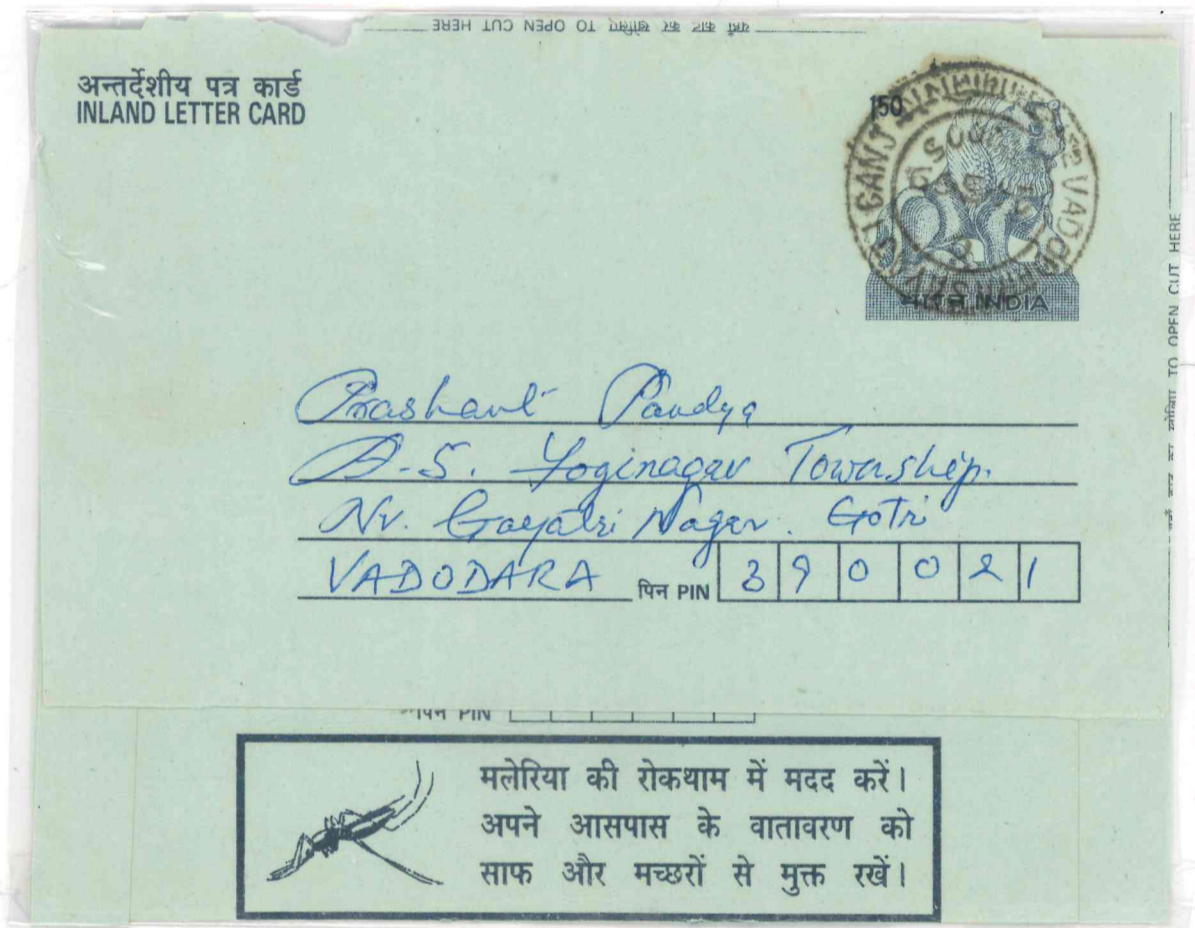 यहाँ काट कर खोलिए TO OPEN CUT HERE
अन्तर्देशीय पत्र कार्ड
INLAND LETTER CARD
150
भारत INDIA
TO OPEN CUT HERE
Prashant Pandya
Yoginagar Township.
Nr. Gayatri Nagar. Gotri
VADODARA पिन PIN 390021
पिन PIN
मलेरिया की रोकथाम में मदद करें।
अपने आसपास के वातावरण को
साफ और मच्छरों से मुक्त रखें।